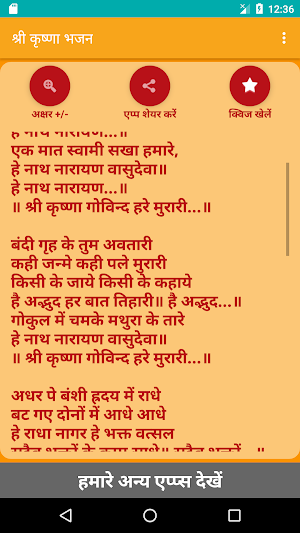 12:36
श्री कृष्णा भजन
अक्षर +/-
एप्प शेयर करें
क्विज खेलें
हे नाथ नारायण...॥
एक मात स्वामी सखा हमारे,
हे नाथ नारायण वासुदेवा॥
हे नाथ नारायण...॥
॥ श्री कृष्णा गोविन्द हरे मुरारी...॥
बंदी गृह के तुम अवतारी
कही जन्मे कही पले मुरारी
किसी के जाये किसी के कहाये
है अद्भुद हर बात तिहारी॥ है अद्भुद...॥
गोकुल में चमके मथुरा के तारे
हे नाथ नारायण वासुदेवा॥
॥ श्री कृष्णा गोविन्द हरे मुरारी...॥
अधर पे बंशी ह्रदय में राधे
बट गए दोनों में आधे आधे
हे राधा नागर हे भक्त वत्सल
हमारे अन्य एप्प्स देखें